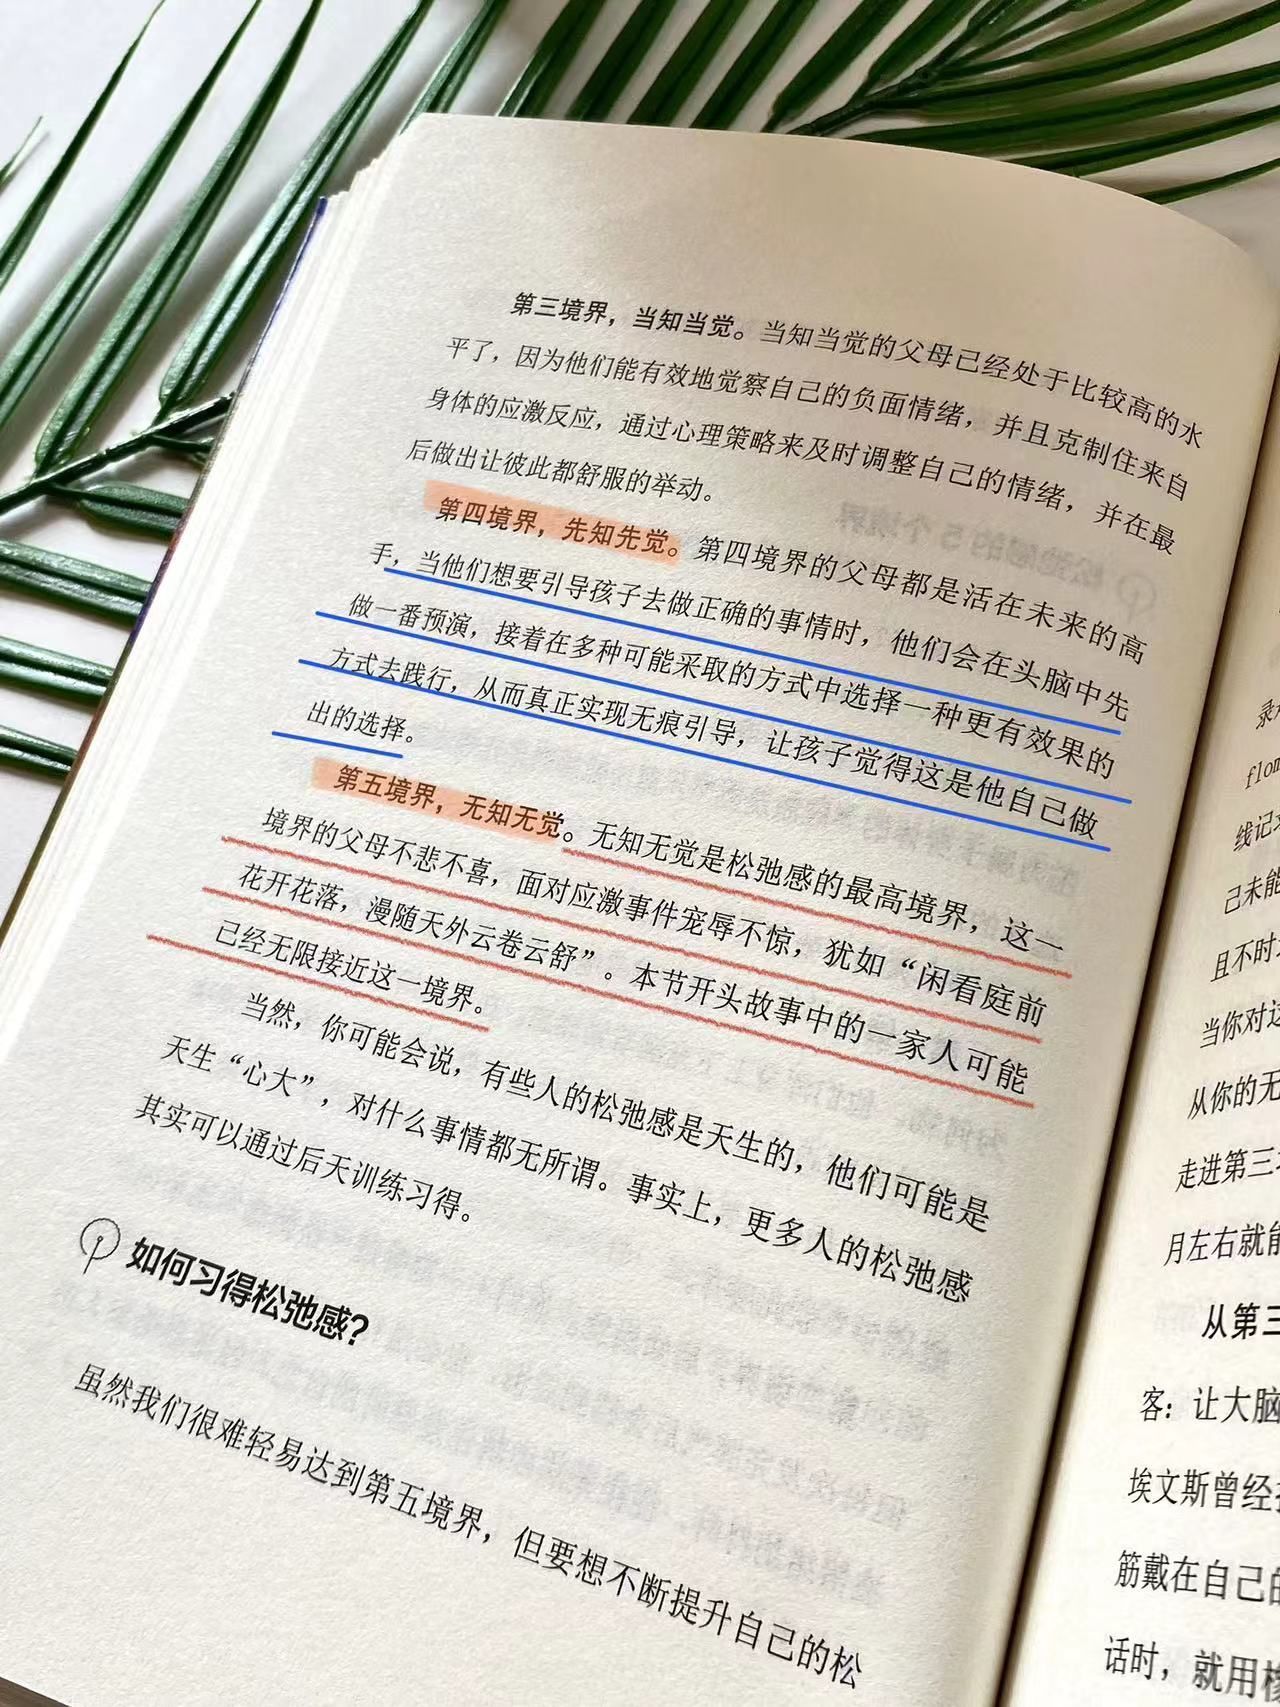 第三境界，当知当觉。当知当觉的父母已经处于比较高的水
平了，因为他们能有效地觉察自己的负面情绪，并且克制住来自
身体的应激反应，通过心理策略来及时调整自己的情绪，并在最
后做出让彼此都舒服的举动。
第四境界，先知先觉。第四境界的父母都是活在未来的高
手，当他们想要引导孩子去做正确的事情时，他们会在头脑中先
做一番预演，接着在多种可能采取的方式中选择一种更有效果的
方式去践行，从而真正实现无痕引导，让孩子觉得这是他自己做
出的选择。
第五境界，无知无觉。无知无觉是松弛感的最高境界，这一
境界的父母不悲不喜，面对应激事件宠辱不惊，犹如“闲看庭前
花开花落，漫随天外云卷云舒”。本节开头故事中的一家人可能
已经无限接近这一境界。
当然，你可能会说，有些人的松弛感是天生的，他们可能是
天生“心大”，对什么事情都无所谓。事实上，更多人的松弛感
其实可以通过后天训练习得。
如何习得松弛感？
虽然我们很难轻易达到第五境界，但要想不断提升自己的松
flom
线记
己未能
且不时
当你对这
从你的无
走进第三
月左右就能
从第三
客：让大脑
埃文斯曾经
筋戴在自己的
话时，就用橡